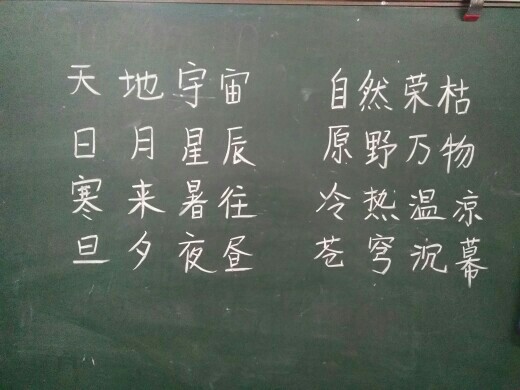 天地宇宙 自然荣枯
日月星辰 原野万物
寒来暑往 冷热温凉
旦夕夜昼 苍穹沉幕